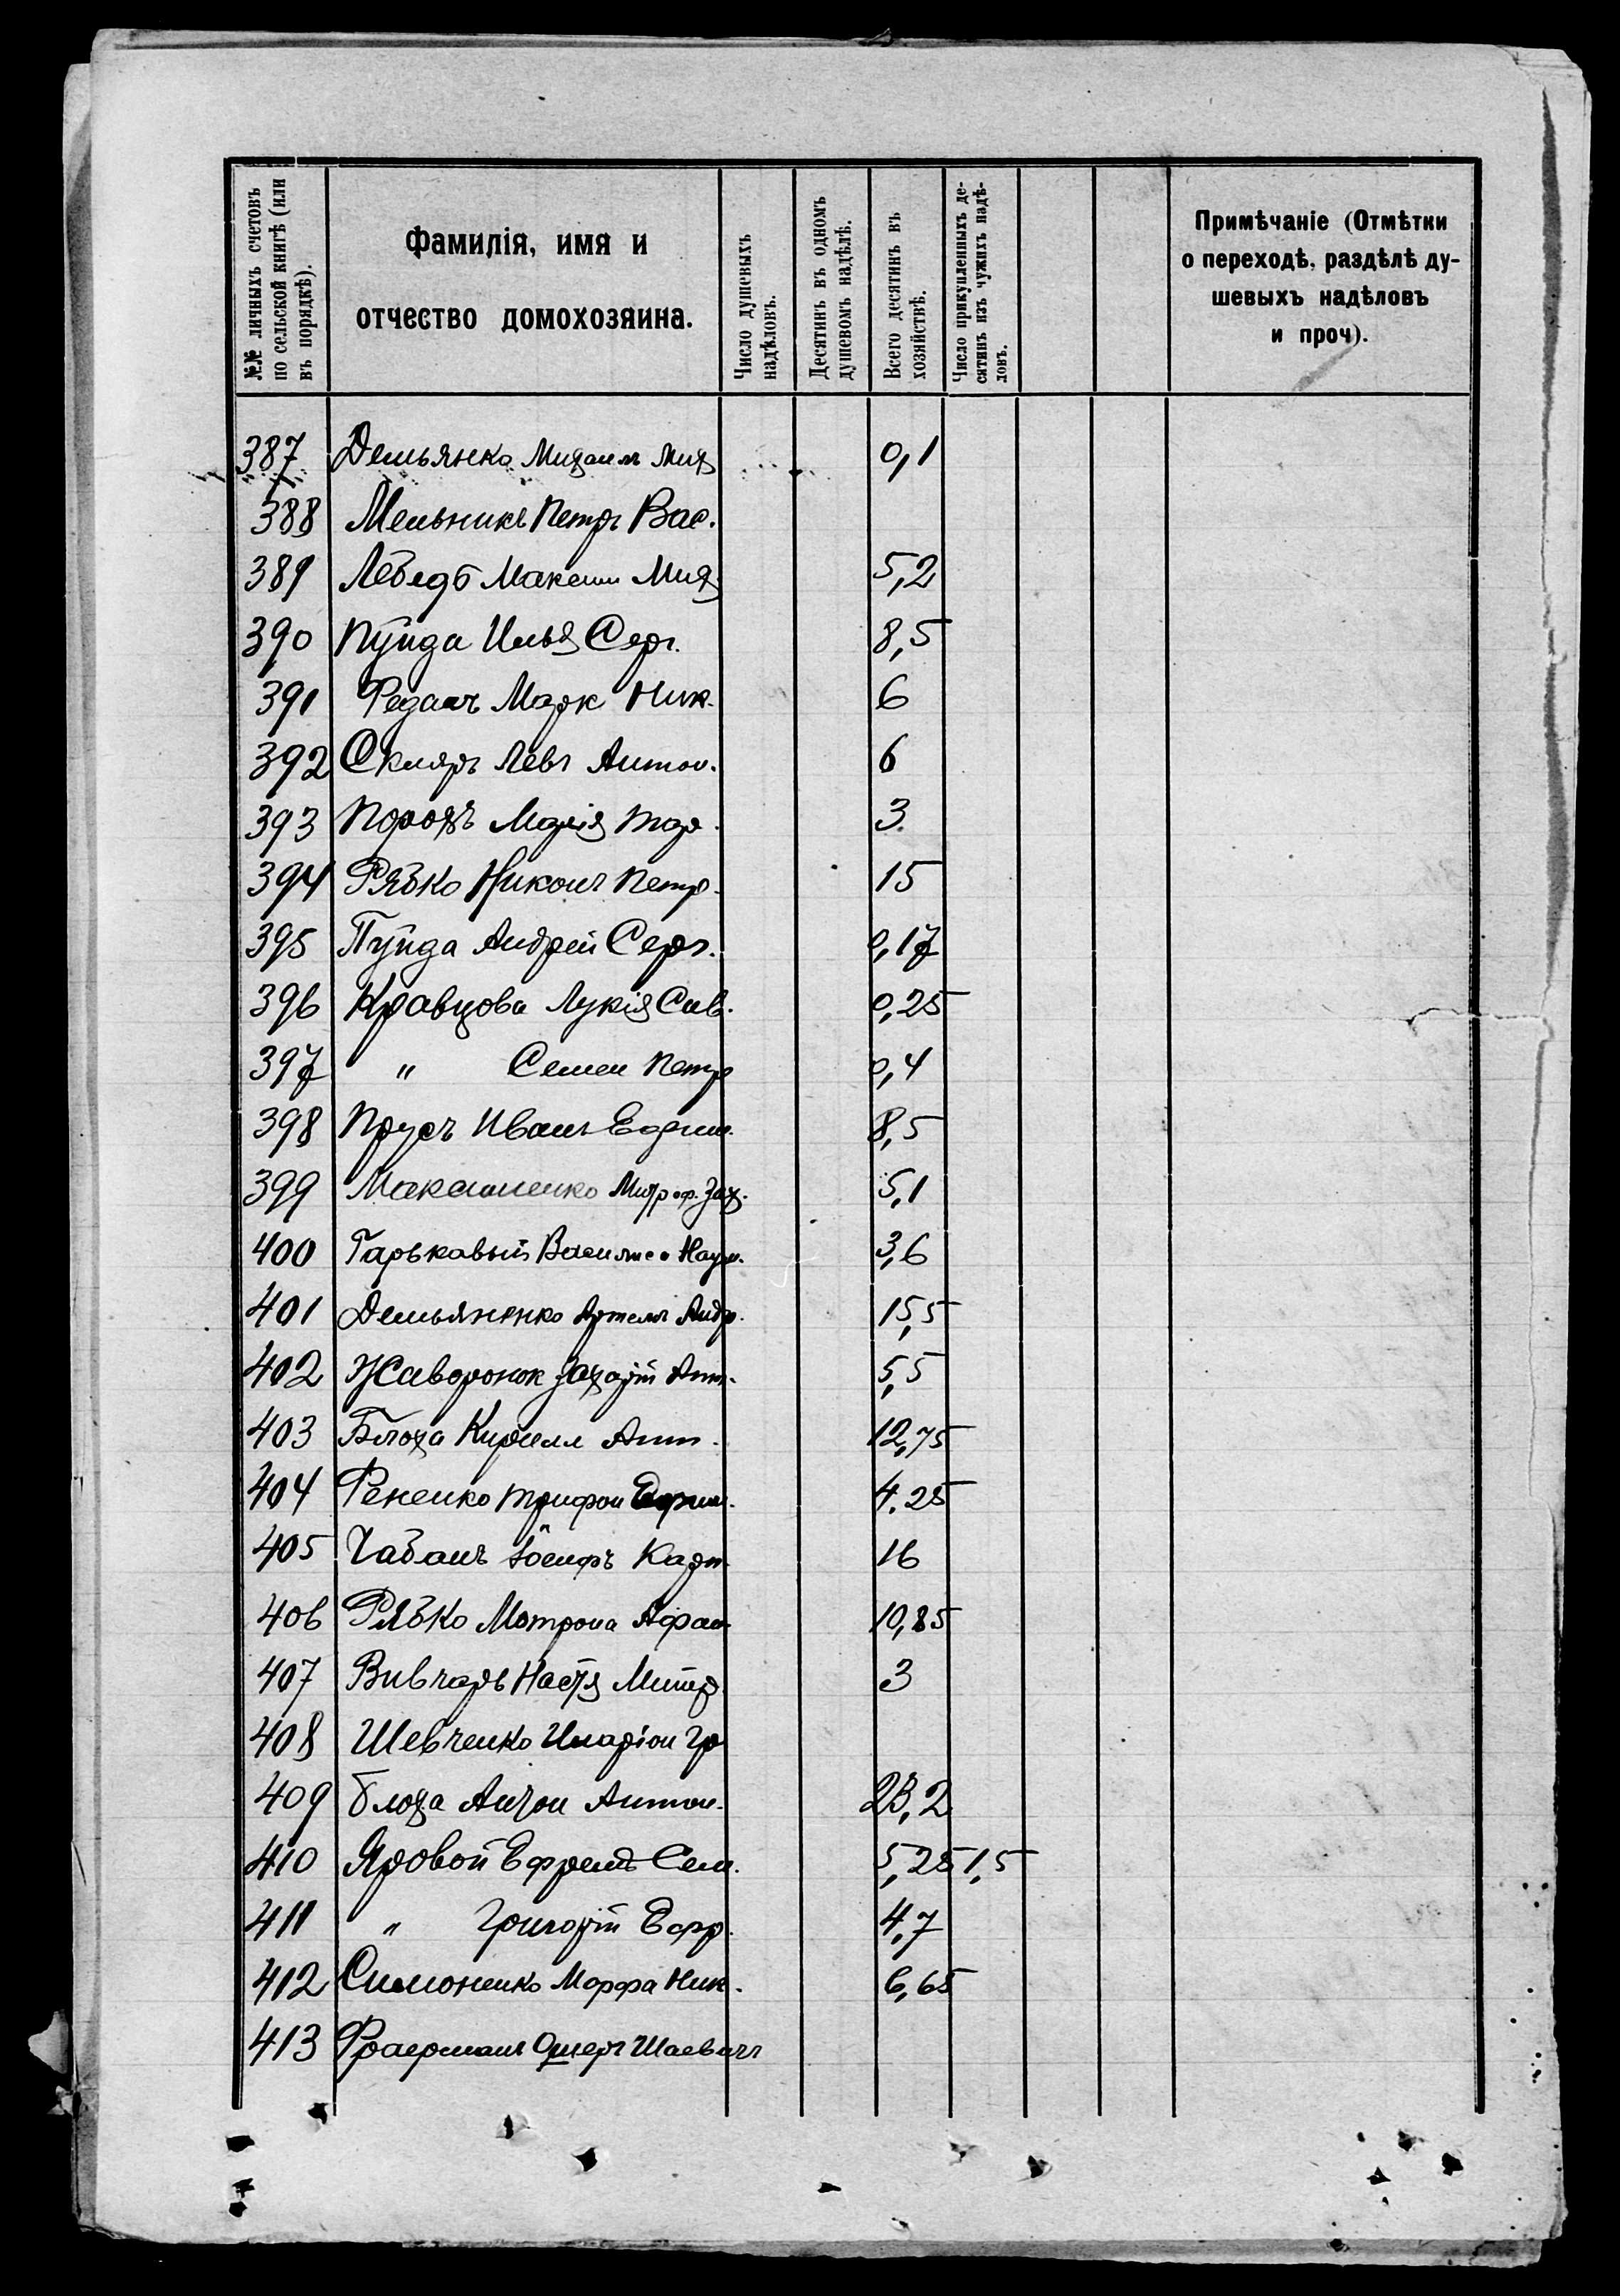 №№ личныхъ счетовъ по сельской книгѣ (или въ порядкѣ).
Фамилія, имя и отчество домохозяина.
Число душевыхъ надѣловъ.
Десятинъ въ одномъ душевомъ надѣлѣ.
Всего десятинъ въ хозяйствѣ.
Число прикупленныхъ десятинъ изъ чужихъ надѣловъ.
Примѣчаніе (Отмѣтки о переходѣ, раздѣлѣ душевыхъ надѣловъ и проч).
387 Демьянко Михаилъ Мих 0,1
388 Мельникъ Петръ Вас.
389 Лебедь Максим Мих 5,2
390 Пунда Илья Серг. 8,5
391 Федач Марк Ник. 6
392 Скляръ Левъ Антон. 6
393 Порохъ Марія Тар. 3
394 Рябко Никонъ Петр. 15
395 Пунда Андрей Серг. 0,17
396 Кравцова Лукія Сав. 0,25
397 " Семен Петр 0,4
398 Прусъ Иванъ Ефрем. 8,5
399 Макаименко Митроф. Зах. 5,1
400 Гарькавый Василис. Наум. 3,6
401 Демьяненко Артемъ Андр. 15,5
402 Жаворонок Захарій Ант. 5,5
403 Блоха Кирилл Ант. 12,75
404 Рененко Трифон Ефрем. 4.25
405 Чабанъ Іосифъ Карп. 16
406 Рябко Мотрона Афан 10,85
407 Вивчарь Настя Митр. 3
408 Шевченко Иларіон Гр
409 Блоха Антон Антон. 23,2
410 Яровой Ефремъ Сем. 5,25 1,5
411 " Григорій Ефр. 4,7
412 Симоненко Марфа Ник. 6,65
413 Фраерманъ Ошеръ Шаевичъ